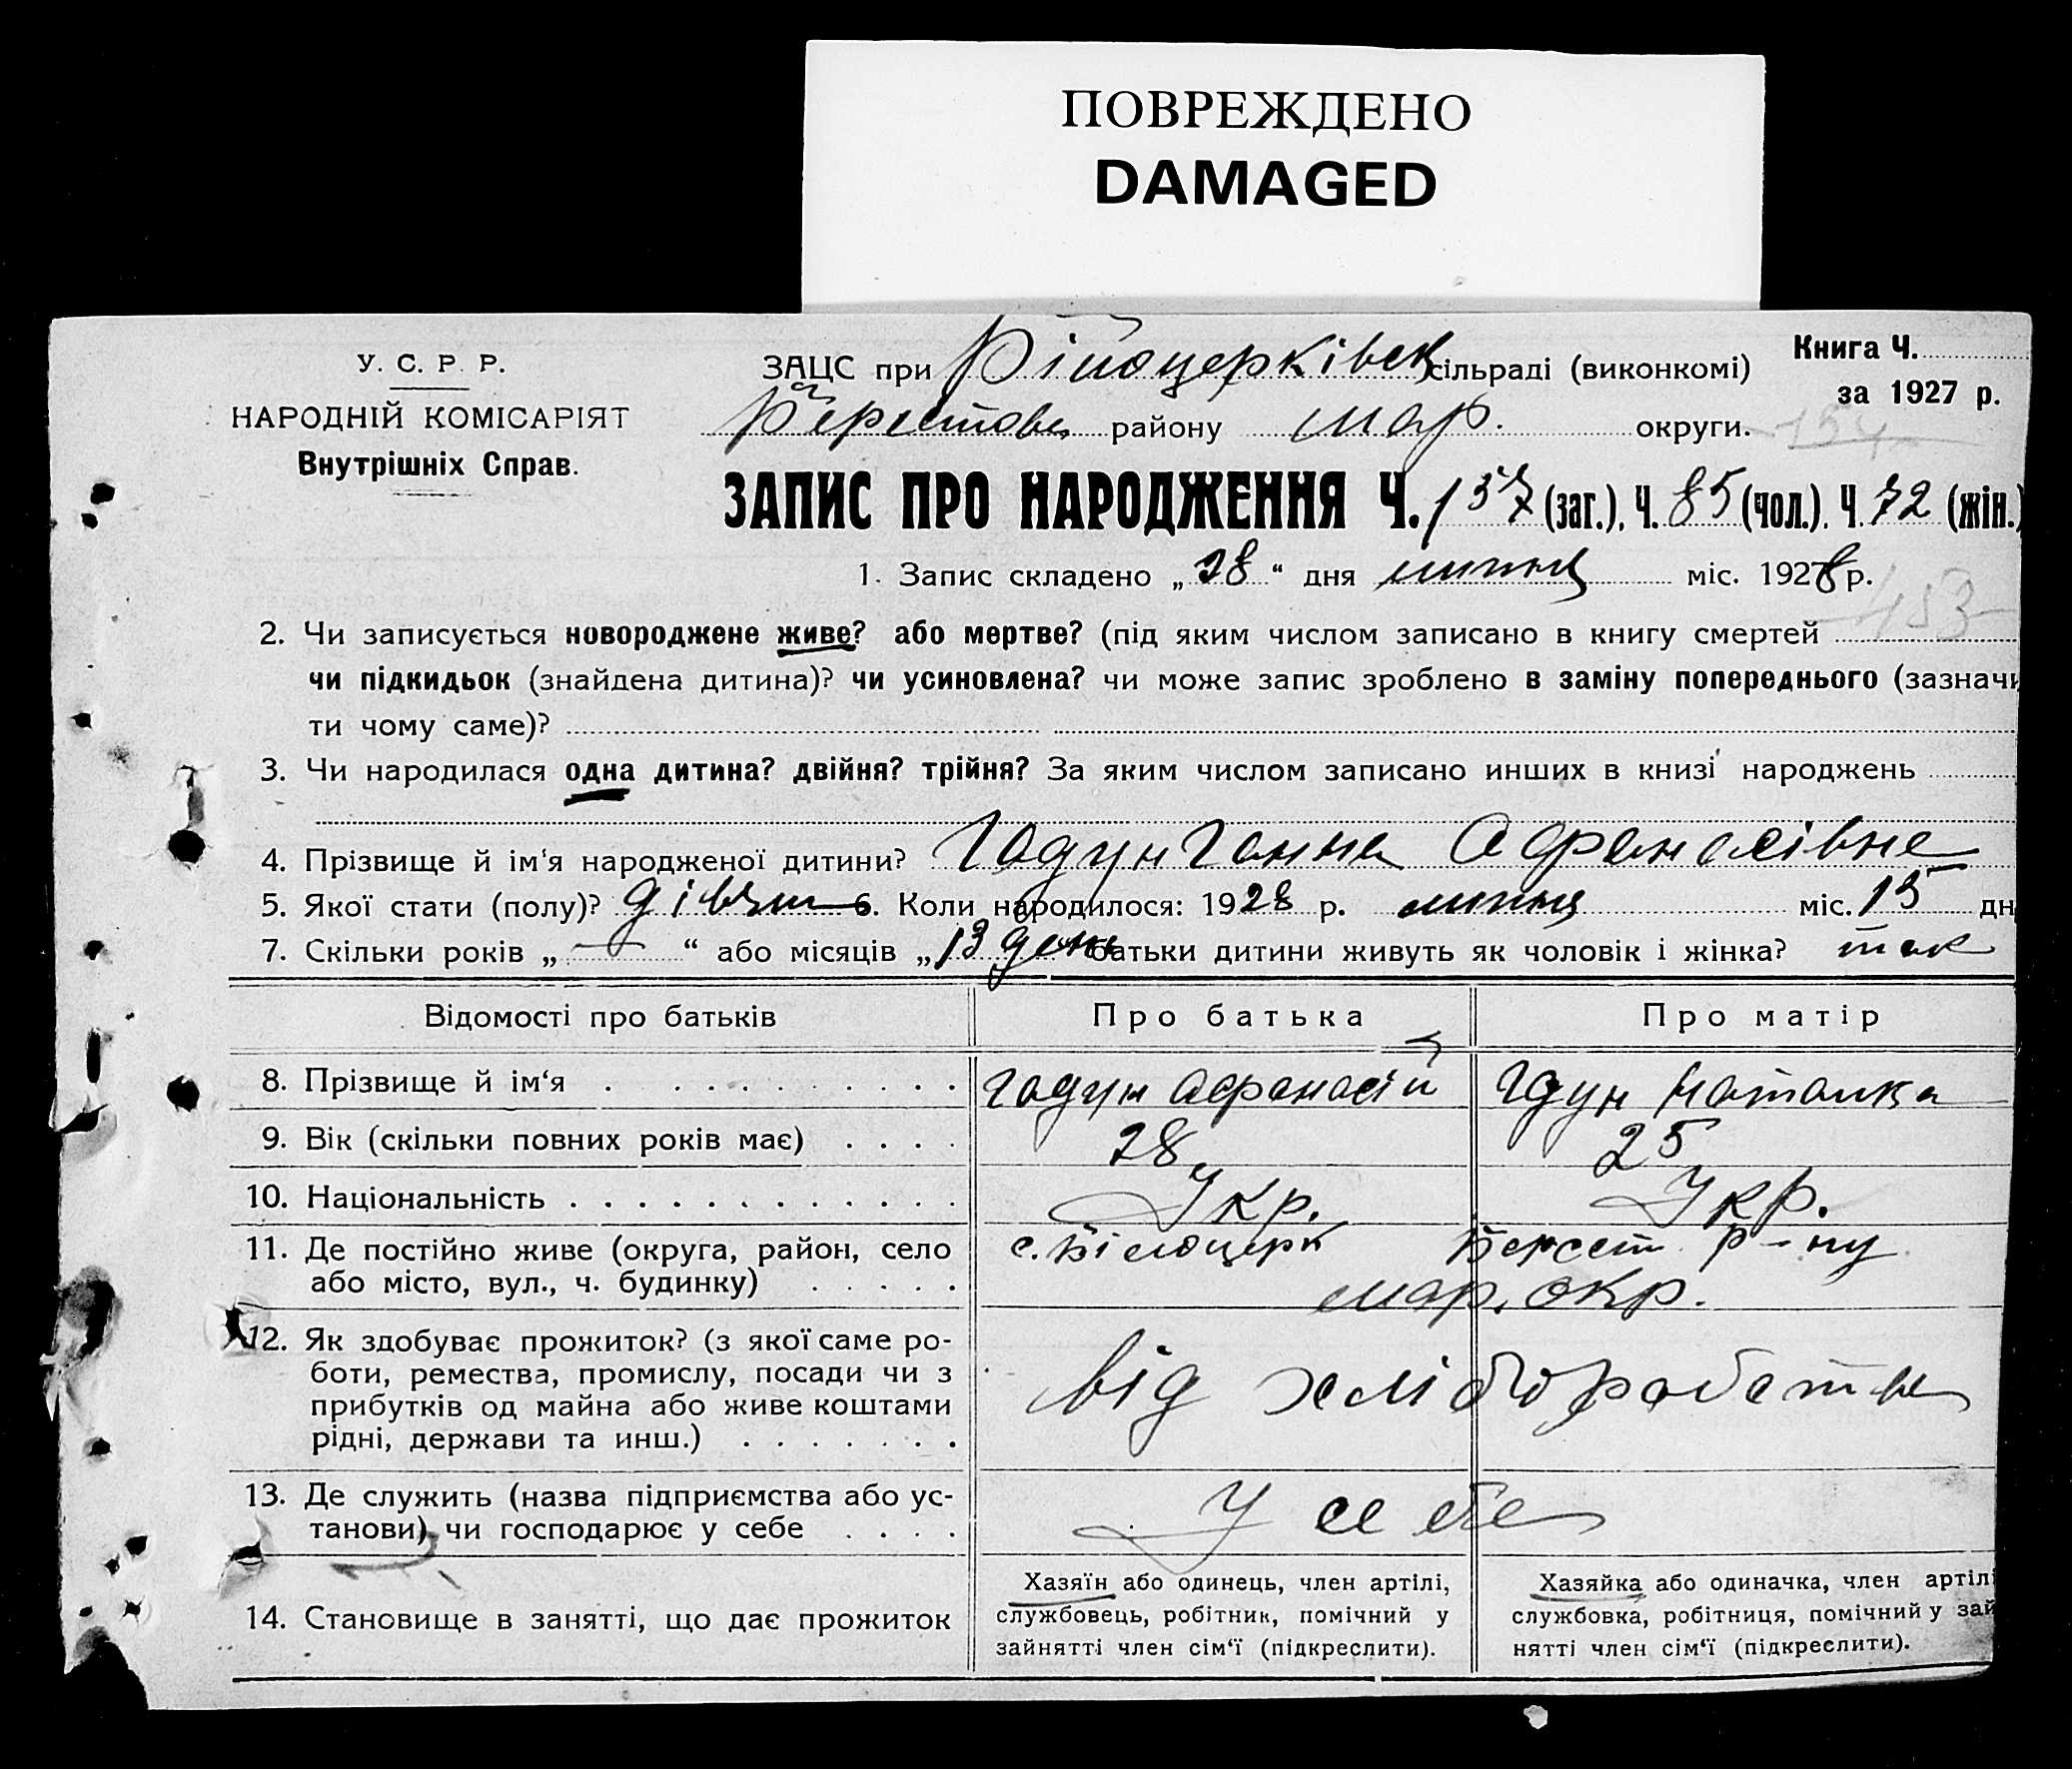 ПОВРЕЖДЕНО
DAMAGED
У. С. Р. Р.
НАРОДНІЙ КОМІСАРІЯТ
Внутрішніх Справ.
ЗАЦС при Білоцерківск сільраді (виконкомі)
Книга Ч.
за 1927 р.
Берестове району мар. округи.
154
ЗАПИС ПРО НАРОДЖЕННЯ Ч. 157 (заг.), Ч. 85 (чол.). Ч. 72 (жін.)
1. Запис складено „ 28 “ дня липня міс. 1928 р.
153
2. Чи записується новороджене живе? або мертве? (під яким числом записано в книгу смертей
чи підкидьок (знайдена дитина)? чи усиновлена? чи може запис зроблено в заміну попереднього (зазначи
ти чому саме)?
3. Чи народилася одна дитина? двійня? трійня? За яким числом записано инших в книзі народжень
4. Прізвище й ім‘я народженої дитини? Гадун Ганна Афанасівне
5. Якої стати (полу)? дівчин 6. Коли народилося: 1928 р. липня міс. 15 дн
7. Скільки років „ — “ або місяців „ 13 день батьки дитини живуть як чоловік і жінка? так
Відомості про батьків
Про батька
Про матір
8. Прізвище й ім‘я
Гадун Афанасій
Гдун Наталка
9. Вік (скільки повних років має)
28
25
10. Національність
Укр.
Укр.
11. Де постійно живе (округа, район, село
або місто, вул., ч. будинку)
с. Білоцерк Берест р-ну
мар. окр.
12. Як здобуває прожиток? (з якої саме ро-
боти, ремества, промислу, посади чи з
прибутків од майна або живе коштами
рідні, держави та инш.)
від хліборобства
13. Де служить (назва підприємства або ус-
танови) чи господарює у себе
У себе
14. Становище в занятті, що дає прожиток
Хазяїн або одинець, член артілі,
службовець, робітник, помічний у
зайнятті член сім‘ї (підкреслити).
Хазяйка або одиначка, член артілі
службовка, робітниця, помічний у зай
нятті член сім‘ї (підкреслити).